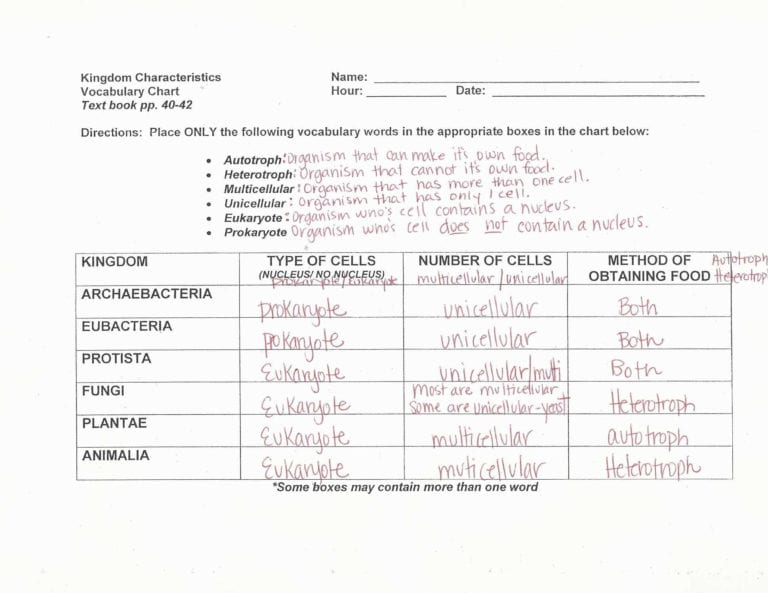 Kingdom Characteristics Name: ____
Vocabulary Chart Hour: ____ Date: ____
Text book pp. 40-42
Directions: Place ONLY the following vocabulary words in the appropriate boxes in the chart below:
• Autotroph: Organism that can make it's own food.
• Heterotroph: Organism that cannot it's own food.
• Multicellular: Organism that has more than one cell.
• Unicellular: Organism that has only 1 cell.
• Eukaryote: Organism who's cell contains a nucleus.
• Prokaryote Organism who's cell does not contain a nucleus.
KINGDOM TYPE OF CELLS NUMBER OF CELLS METHOD OF Autotroph
(NUCLEUS/ NO NUCLEUS) OBTAINING FOOD Heterotrop
prokaryote/Eukaryote multicellular/unicellular
ARCHAEBACTERIA prokaryote unicellular Both
EUBACTERIA prokaryote unicellular Both
PROTISTA Eukaryote unicellular/multi Both
FUNGI Eukaryote Most are multicellular Heterotroph
Some are unicellular-yeast
PLANTAE Eukaryote multicellular autotroph
ANIMALIA Eukaryote muticellular Heterotroph
*Some boxes may contain more than one word